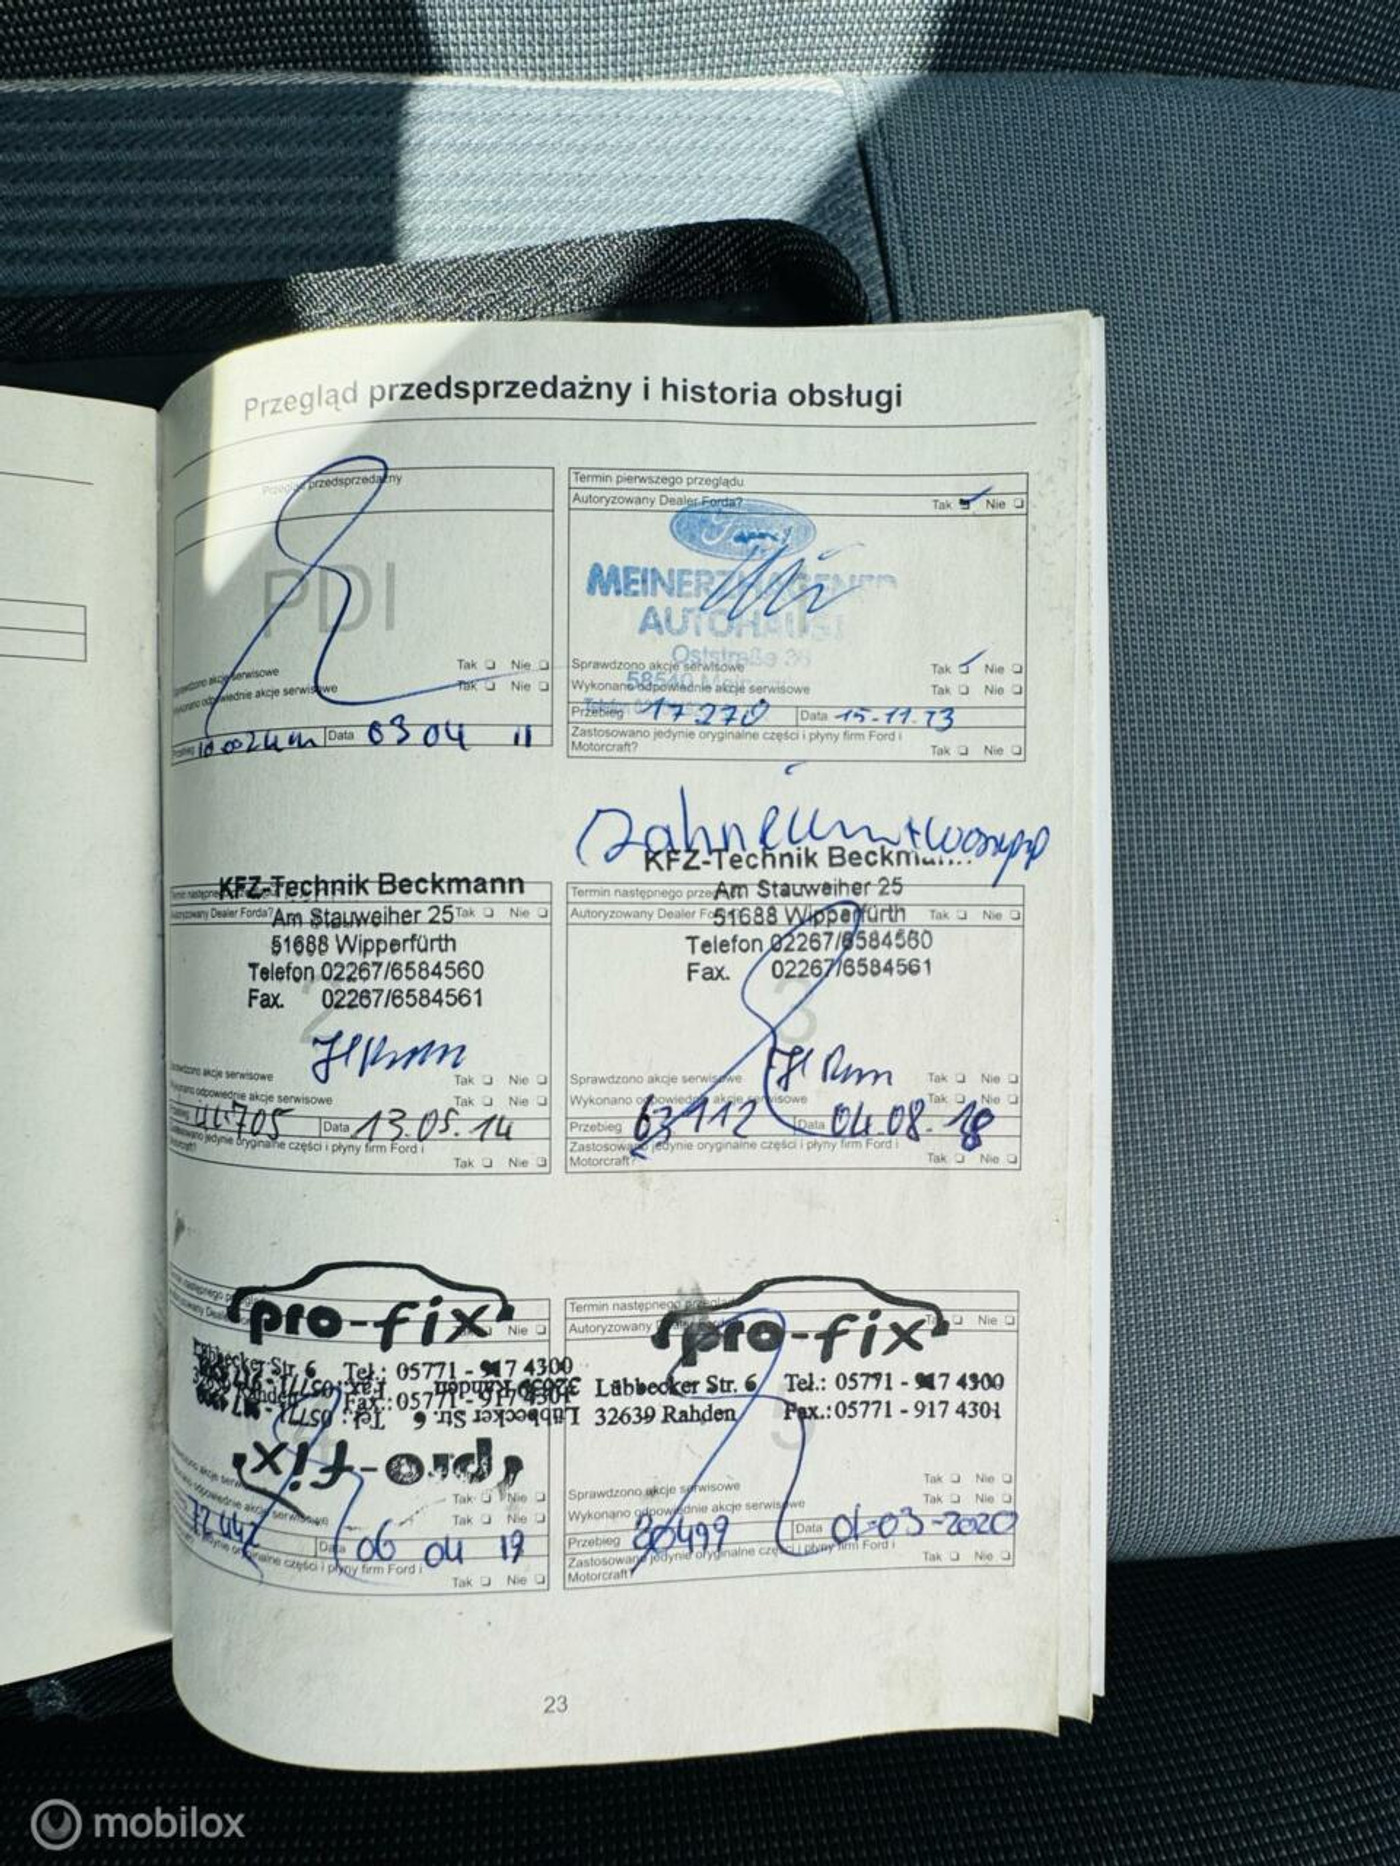 Przegląd przedsprzedażny i historia obsługi
Przegląd przedsprzedażny
PDI
Sprawdzono akcje serwisowe
Tak Nie
Wykonano odpowiednie akcje serwisowe
Tak Nie
Data 03 04 11
Termin pierwszego przeglądu
Autoryzowany Dealer Forda? Tak Nie
Ford
MEINERZHAGENER
AUTOHAUS
Oststraße
58540
Sprawdzono akcje serwisowe Tak Nie
Wykonano odpowiednie akcje serwisowe Tak Nie
Przebieg 17270 Data 15-11.13
Zastosowano jedynie oryginalne części i płyny firm Ford i
Motorcraft? Tak Nie
KFZ-Technik Beckmann
Autoryzowany Dealer Forda? Tak Nie
Am Stauweiher 25
51688 Wipperfürth
Telefon 02267/6584560
Fax. 02267/6584561
2
Sprawdzono akcje serwisowe Tak Nie
Wykonano odpowiednie akcje serwisowe Tak Nie
Data 13.05.14
jedynie oryginalne części i płyny firm Ford i
Tak Nie
Zahnriemen +
KFZ-Technik
Termin następnego
Am Stauweiher 25
Autoryzowany Dealer Tak Nie
51688 Wipperfürth
Telefon 02267/6584560
Fax. 02267/6584561
3
Sprawdzono akcje serwisowe Tak Nie
Wykonano odpowiednie akcje serwisowe Tak Nie
Przebieg 63112 Data 04.08.18
Zastosowano jedynie oryginalne części i płyny firm Ford i
Motorcraft? Tak Nie
pro-fix
Nie
Lübbecker Str. 6 Tel.: 05771 - 917 4300
Fax.: 05771 - 917 4301
pro-fix
Tak Nie
Tak Nie
Data 06 04 19
oryginalne części i płyny firm Ford i
Tak Nie
Termin następnego przeglądu
Autoryzowany Nie
pro-fix
Lübbecker Str. 6 Tel.: 05771 - 917 4300
32639 Rahden Fax.: 05771 - 917 4301
5
Sprawdzono akcje serwisowe Tak Nie
Wykonano odpowiednie akcje serwisowe Tak Nie
Przebieg Data 01-03-2020
Zastosowano jedynie oryginalne części i płyny firm Ford i
Motorcraft? Tak Nie
23
mobilox